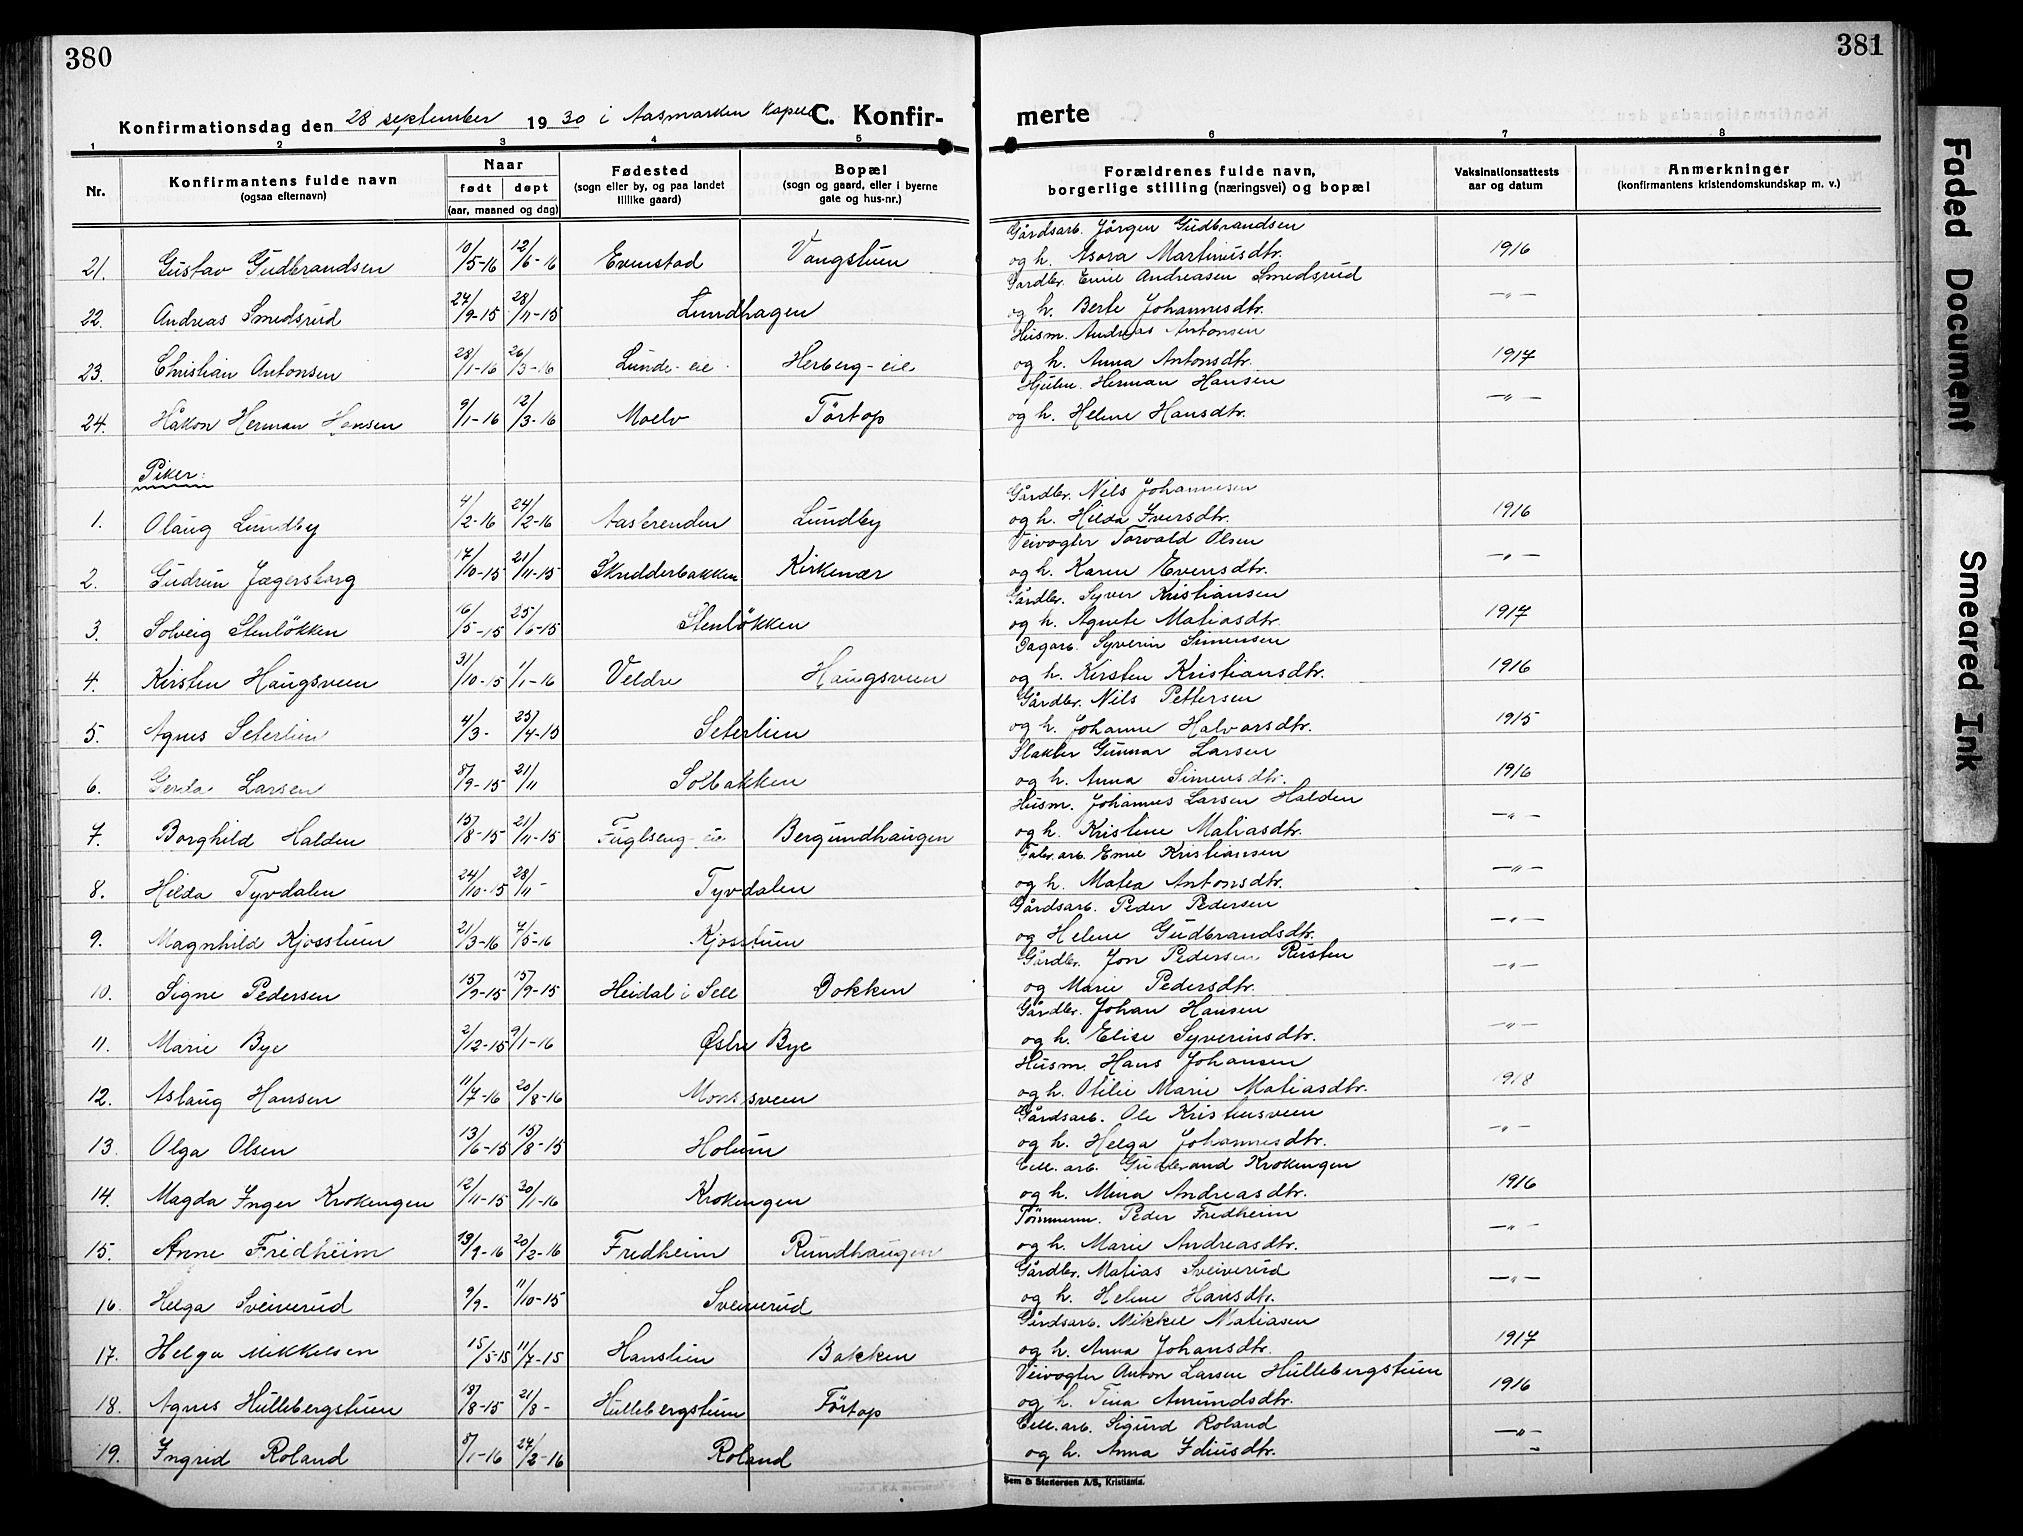 380
381
Konfirmationsdag den 28 september 1930 i Aasmarken Kapell C. Konfir-
merte
1 2 3 4 5 6 7 8
Nr. Konfirmantens fulde navn (ogsaa efternavn) Naar født døpt (aar, maaned og dag) Fødested (sogn eller by, og paa landet tillike gaard) Bopæl (sogn og gaard, eller i byerne gate og hus-nr.) Forældrenes fulde navn, borgerlige stilling (næringsvei) og bopæl Vaksinationsattests aar og datum Anmerkninger (konfirmantens kristendomskundskap m. v.)
Gårdsarb. Jörgen Gudbrandsen
21. Gustav Gudbrandsen 10/5-16 12/6-16 Evenstad Vangstuen og h. Asora Martinusdtr. 1916
Gårdbr. Emil Andreasen Smedsrud
22. Andreas Smedsrud 27/9-15 28/11-15 Lundhagen og h. Berte Johannesdtr. -"-
Husm. Andreas Antonsen
23. Christian Antonsen 28/1-16 26/3-16 Lunde-eie Herberg-eie og h. Anna Antonsdtr. 1917
Herman Hansen
24. Håkon Herman Hansen 9/1-16 12/3-16 Moelv Törtop og h. Helene Hansdtr. -"-
Piker:
Gårdbr. Nils Johannesen
1. Olaug Lundby 4/2-16 24/2-16 Aasterenden Lundby og h. Hilda Iversdtr. 1916
Veivogter Torvald Olsen
2. Gudrun Jægersborg 17/10-15 21/11-15 Skredderbakken Kirkenær og h. Karen Evensdtr. -"-
Gårdbr. Syver Kristiansen
3. Solveig Stenlökken 16/5-15 25/6-15 Stenlökken og h. Agnete Matiasdtr. 1917
Dagarb. Syverin Simensen
4. Kirsten Haugsveen 31/10-15 1/1-16 Veldre Haugsveen og h. Kirsten Kristiansdtr. 1916
Gårdbr. Nils Pettersen
5. Agnes Seterlien 4/3- 25/4-15 Seterlien og h. Johanne Halvarsdtr. 1915
Slakter Gunnar Larsen
6. Gerda Larsen 8/9-15 21/11 Solbakken og h. Anna Simensdtr. 1916
Husm. Johannes Larsen Halden
7. Borghild Halden 15/8-15 21/11-15 Fuglseng-eie Bergundhaugen og h. Kristine Matiasdtr. -"-
Fabr. arb. Emil Kristiansen
8. Hilda Tyvdalen 24/10-15 28/11- Tyvdalen og h. Matea Antonsdtr. -"-
Gårdsarb. Peder Pedersen
9. Magnhild Kjosstuen 21/3-16 7/5-16 Kjosstuen og Helene Gudbrandsdtr. -"-
Gårdbr. Jon Pedersen Rusten
10. Signe Pedersen 15/9-15 15/9-15 Heidal i Sell Dokken og Marie Pedersdtr. -"-
Gårdbr. Johan Hansen
11. Marie Bye 2/12-15 9/1-16 Østre Bye og h. Elise Syverinsdtr. -"-
Husm. Hans Johansen
12. Aslaug Hansen 11/7-16 20/8-16 Monssveen og h. Otilie Marie Matiasdtr. 1918
Gårdsarb. Ole Kristensveen
13. Olga Olsen 13/6-15 15/8-15 Holum og h. Helga Johannesdtr. -"-
Cell. arb. Gudbrand Krokengen
14. Magda Inger Krokengen 12/11-15 30/1-16 Krokengen og h. Mina Andreasdtr. 1916
Tömmerm. Peder Fredheim
15. Anne Fredheim 19/9-16 20/2-16 Fredheim Rundhaugen og h. Marie Andreasdtr. -"-
Gårdbr. Matias Sveiverud
16. Helga Sveiverud 9/9- 11/10-15 Sveiverud og h. Helene Hansdtr. -"-
Gårdsarb. Mikkel Matiasen
17. Helga Mikkelsen 15/5-15 11/7-15 Hanslien Bakken og h. Anna Johansdtr. 1917
Veivogter Anton Larsen Hullebergstuen
18. Agnes Hullebergstuen 18/8-15 21/8- Hullebergstuen Törtop og h. Tina Amundsdtr. 1916
Cell. arb. Sigurd Roland
19. Ingrid Roland 8/1-16 27/2-16 Roland og h. Anna Idiusdtr. -"-
Sem & Stenersen A/S, Kristiania.
Faded Document
Smeared Ink